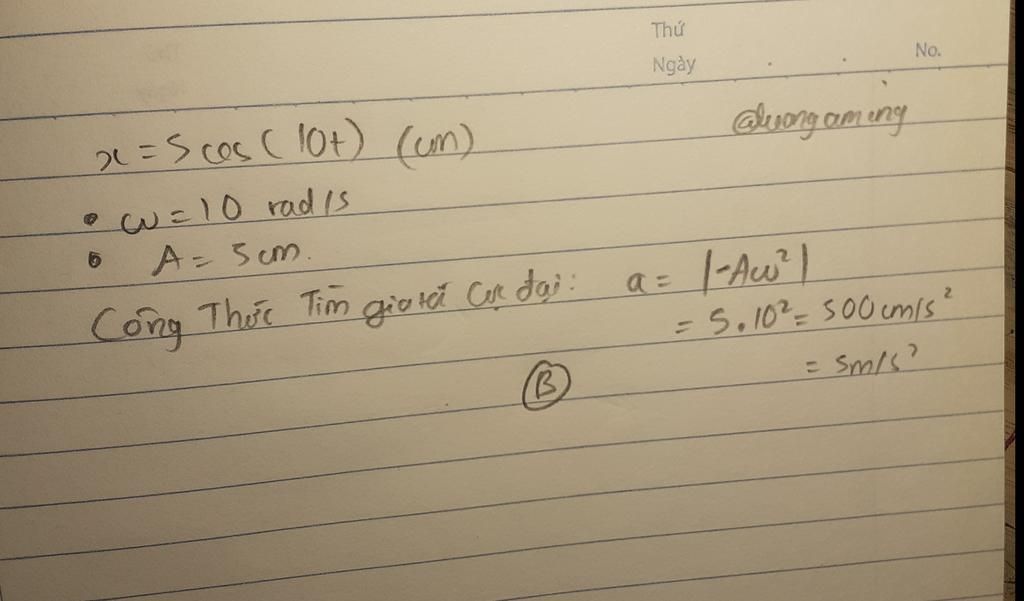 Thứ
Ngày . . No.
@luongaming
x = 5 cos(10t) (cm)
• ω = 10 rad/s
• A = 5 cm.
Công Thức Tìm gia tốc Cực đại: a = |-Aω²|
= 5.10² = 500 cm/s²
= 5m/s²
B